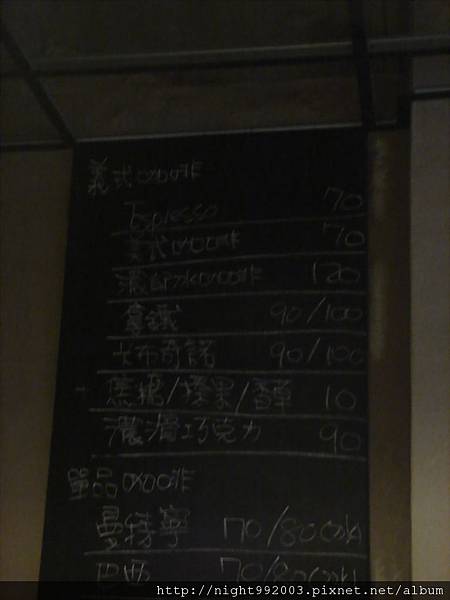 義式咖啡
Espresso 70
美式咖啡 70
滴冰咖啡 120
拿鐵 90/100
卡布奇諾 90/100
+焦糖/榛果/香草 10
濃滑巧克力 90
單品咖啡
曼特寧 70/80(冰)
巴西 70/80(冰)
http://night992003.pixnet.net/album